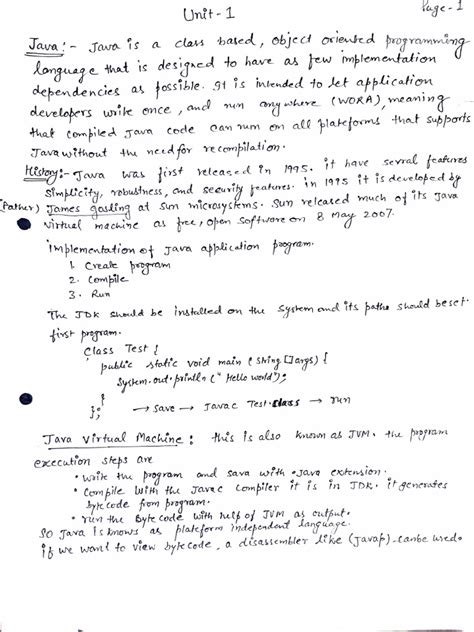 Unit - 1
Page - 1
Java :- Java is a class based, object oriented programming
language that is designed to have as few implementation
dependencies as possible. It is intended to let application
developers write once, and run anywhere (WORA), meaning
that compiled Java code can run on all plateforms that supports
Java without the need for recompilation.
History:- Java was first released in 1995. it have sevral features
Simplicity, robustness, and security features. in 1995 it is developed by
(Father) James gosling at sun microsystems. Sun released much of its Java
virtual machine as free, open Software on 8 May 2007.
implementation of Java application program.
1. Create program
2. Compile
3. Run
The JDK should be installed on the system and its paths should be set
first program.
Class Test {
public static void main ( String []args) {
System.out.println (" Hello world");
}
}; → save → Javac Test.class → run
Java Virtual Machine : this is also known as JVM. the program
execution steps are
• write the program and sava with .java extension.
• Compile with the Javac Compiler it is in JDK. it generates
byte code from program.
• run the Byte code with help of JVM as output.
So Java is knows as plateform independent language.
if we want to view bytecode, a disassembler like (Javap). can be used.